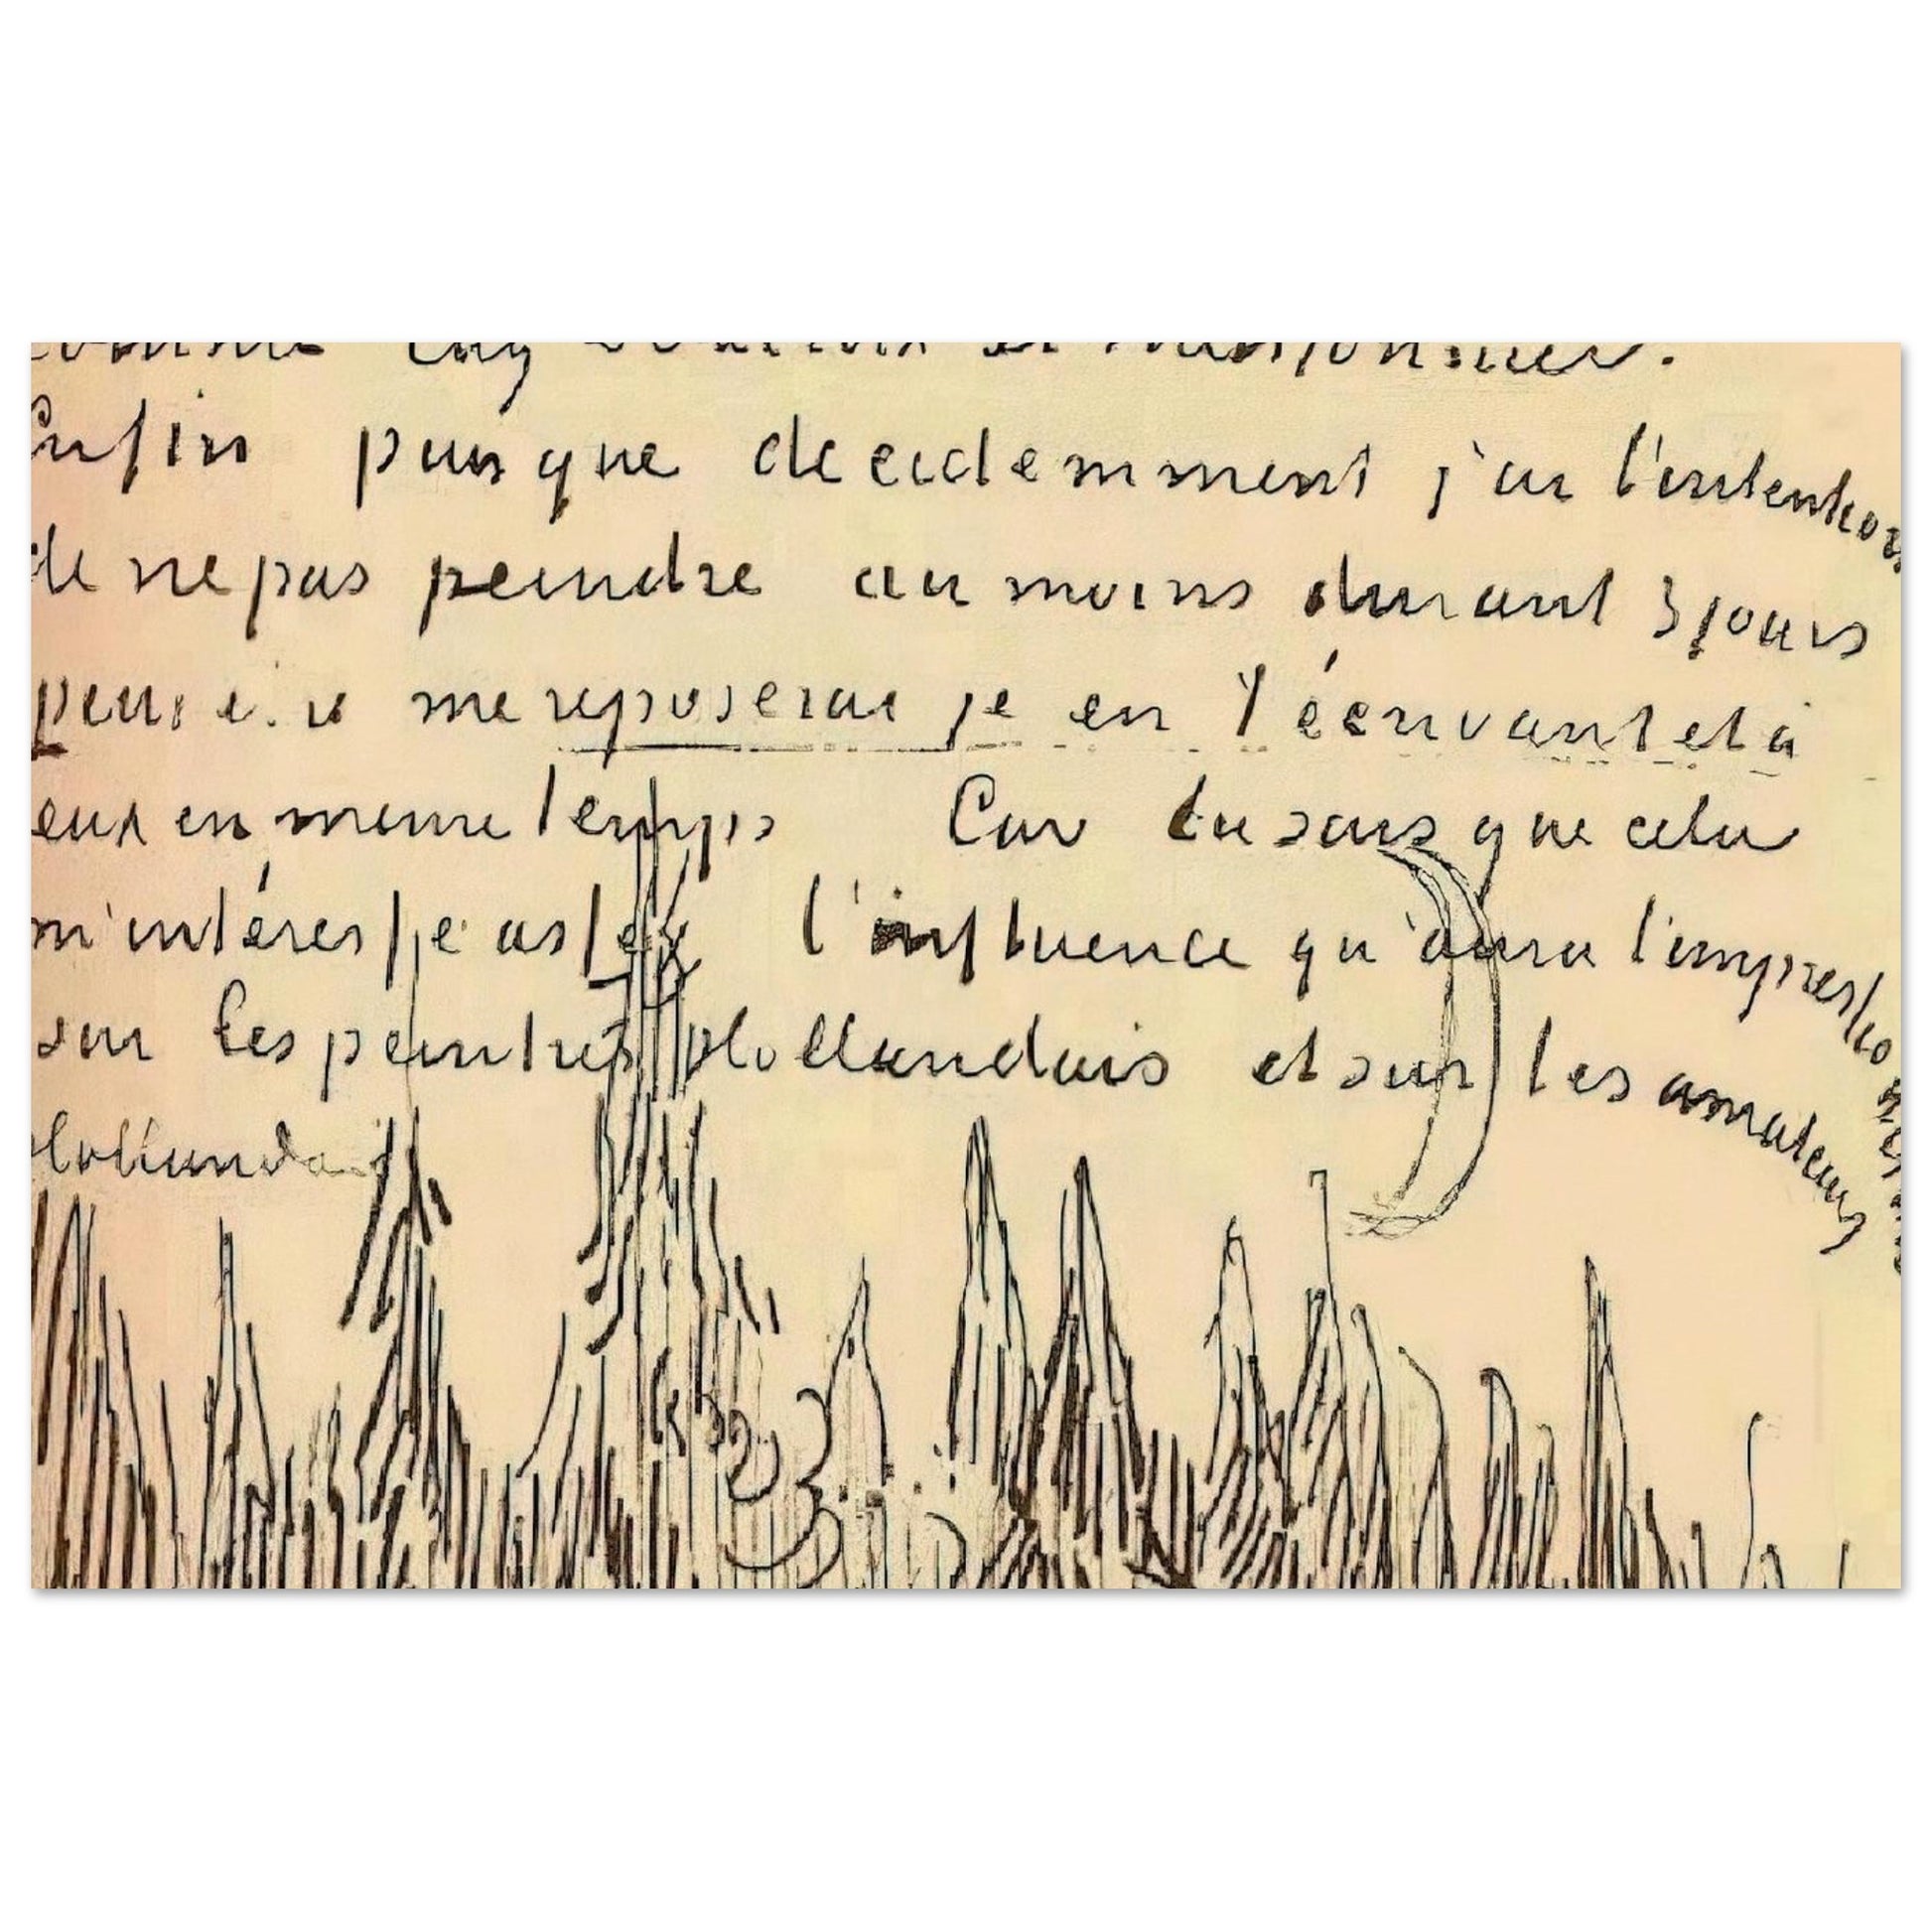 Enfin puisque decidemment j'ai l'intention
de ne pas peindre au moins durant 3 jours
me reposerai je en t'écrivant et à
eux en meme temps Car tu sais que cela
m'intéresse assez l'influence qu'aura l'impressio
sur les peintres Hollandais et sur les amateurs
Hollandais